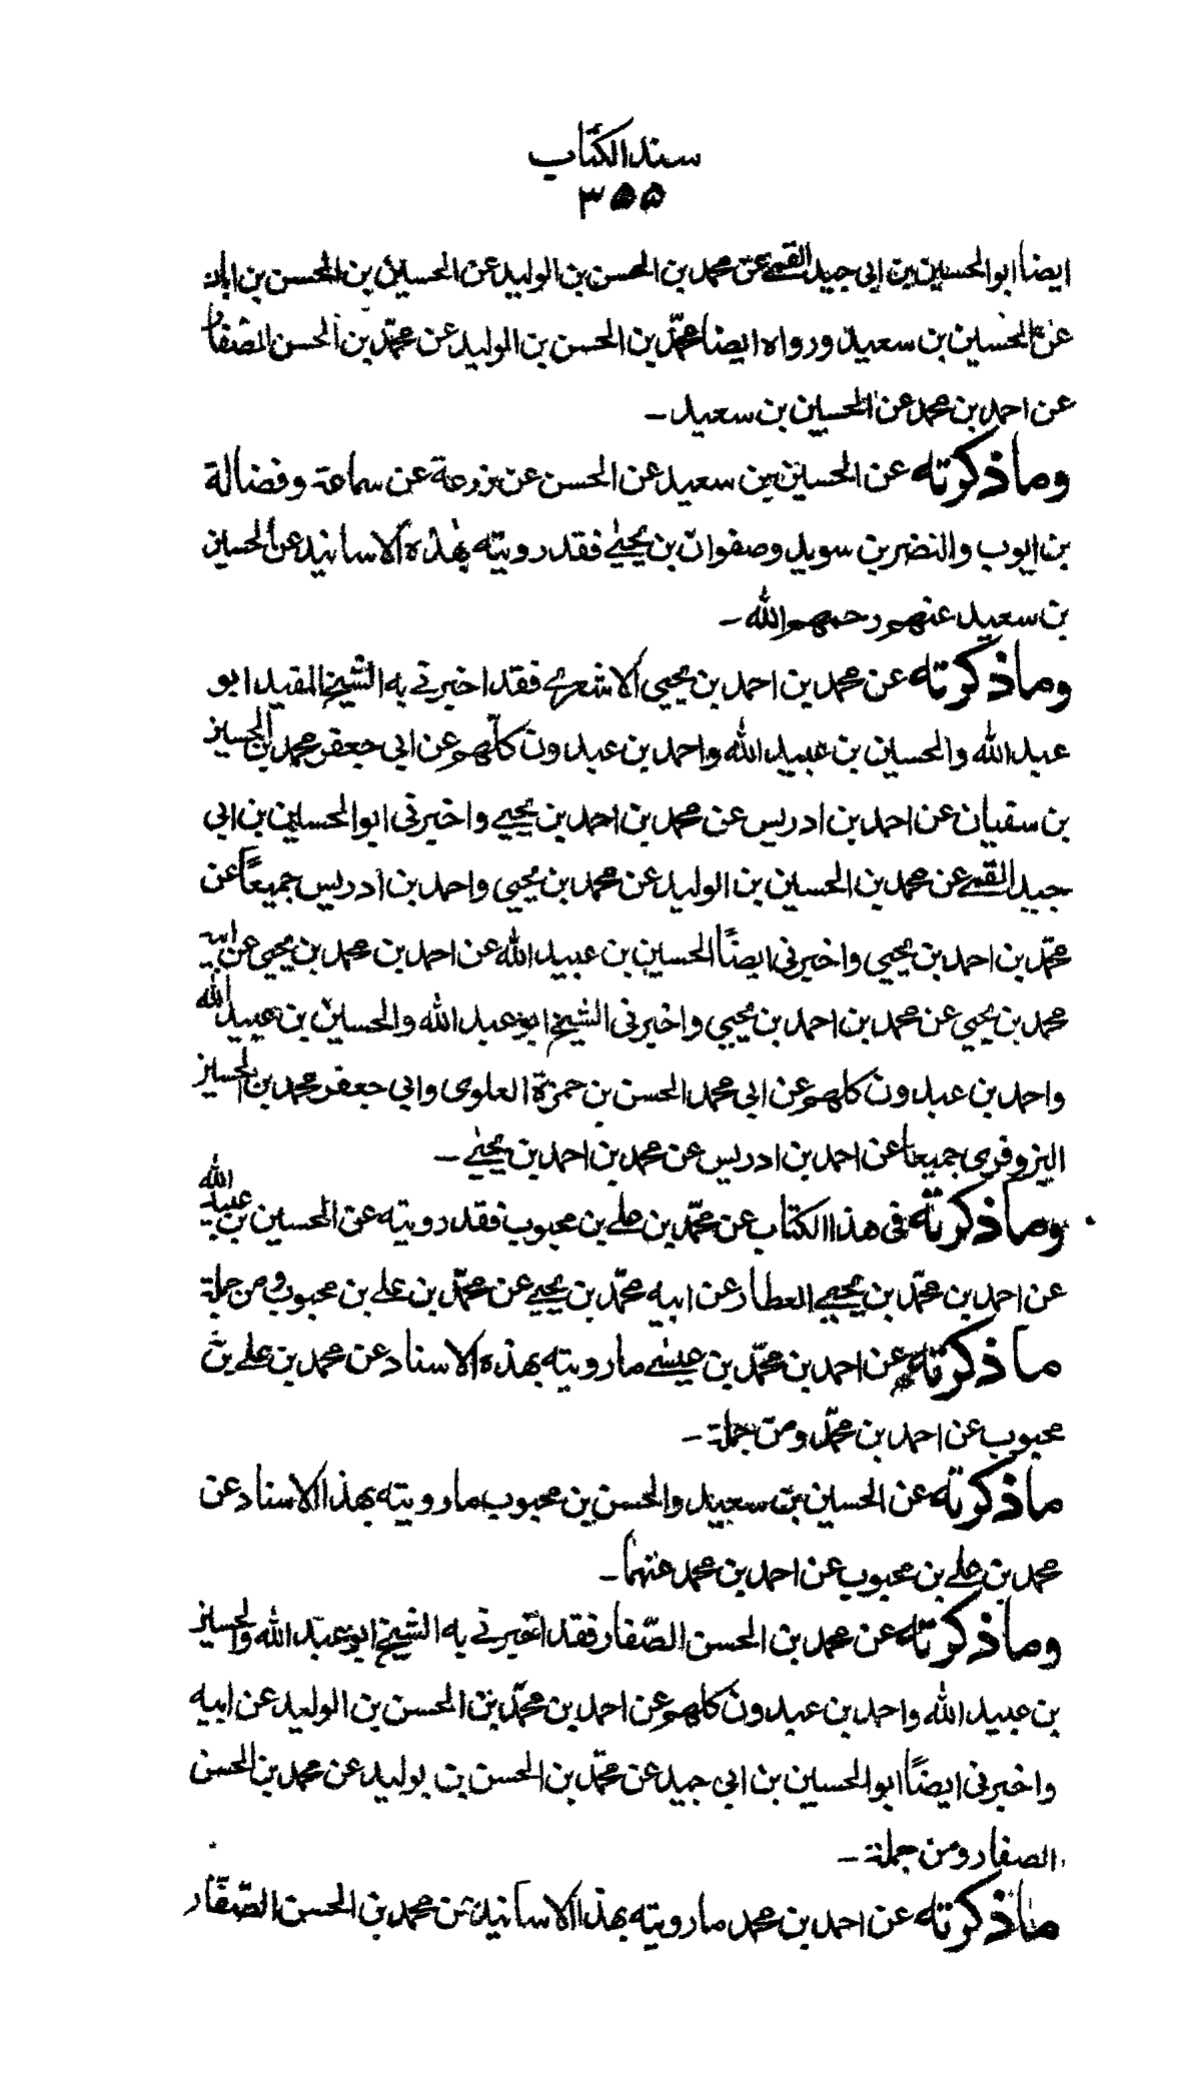 سند الكتاب
٣٥٥
ايضا ابو الحسين بن ابي جيد القمي عن محمد بن الحسن بن الوليد عن الحسين بن الحسن بن ابان
عن الحسين بن سعيد ورواه ايضا محمّد بن الحسن بن الوليد عن محمّد بن الحسن الصفار
عن احمد بن محمد عن الحسين بن سعيد ـ
وما ذكرته عن الحسين بن سعيد عن الحسن عن زرعة عن سماعة وفضالة
بن ايوب والنضر بن سويد وصفوان بن يحيٰي فقد رويته بهٰذه الاسانيد عن الحسين
بن سعيد عنهم رحمهم الله ـ
وما ذكرته عن محمد بن احمد بن يحيي الاشعري فقد اخبرني به الشيخ المفيد ابو
عبد الله والحسين بن عبيد الله واحمد بن عبدون كلّهم عن ابي جعفر محمد بن الحسين
بن سفيان عن احمد بن ادريس عن محمد بن احمد بن يحيي واخبرني ابو الحسين بن ابي
جيد القمي عن محمد بن الحسين بن الوليد عن محمد بن يحيي واحمد بن ادريس جميعًا عن
محمّد بن احمد بن يحيي واخبرني ايضًا الحسين بن عبيد الله عن احمد بن محمد بن يحيي عن ابيه
محمد بن يحيي عن محمد بن احمد بن يحيي واخبرني الشيخ ابو عبد الله والحسين بن عبيد الله
واحمد بن عبدون كلهم عن ابي محمد الحسن بن حمزة العلوي وابي جعفر محمد بن الحسين
البزوفري جميعا عن احمد بن ادريس عن محمد بن احمد بن يحيٰي ـ
وما ذكرته في هذا الكتاب عن محمّد بن علي بن محبوب فقد رويته عن الحسين بن عبيد الله
عن احمد بن محمّد بن يحيي العطار عن ابيه محمّد بن يحيي عن محمّد بن علي بن محبوب ومن جملة
ما ذكرته عن احمد بن محمّد بن عيسٰي ما رويته بهذه الاسناد عن محمد بن علي بن
محبوب عن احمد بن محمّد ومن جملة ـ
ما ذكرته عن الحسين بن سعيد والحسن بن محبوب ما رويته بهذا الاسناد عن
محمد بن علي بن محبوب عن احمد بن محمد عنهما ـ
وما ذكرته عن محمد بن الحسن الصّفار فقد اخبرني به الشيخ ابو عبد الله والحسين
بن عبيد الله واحمد بن عبدون كلهم عن احمد بن محمّد بن الحسن بن الوليد عن ابيه
واخبرني ايضًا ابو الحسين بن ابي جيد عن محمّد بن الحسن بن بوليد عن محمد بن الحسن
الصفار ومن جملة ـ
ما ذكرته عن احمد بن محمد ما رويته بهذا الاسانيد عن محمد بن الحسن الصّفار